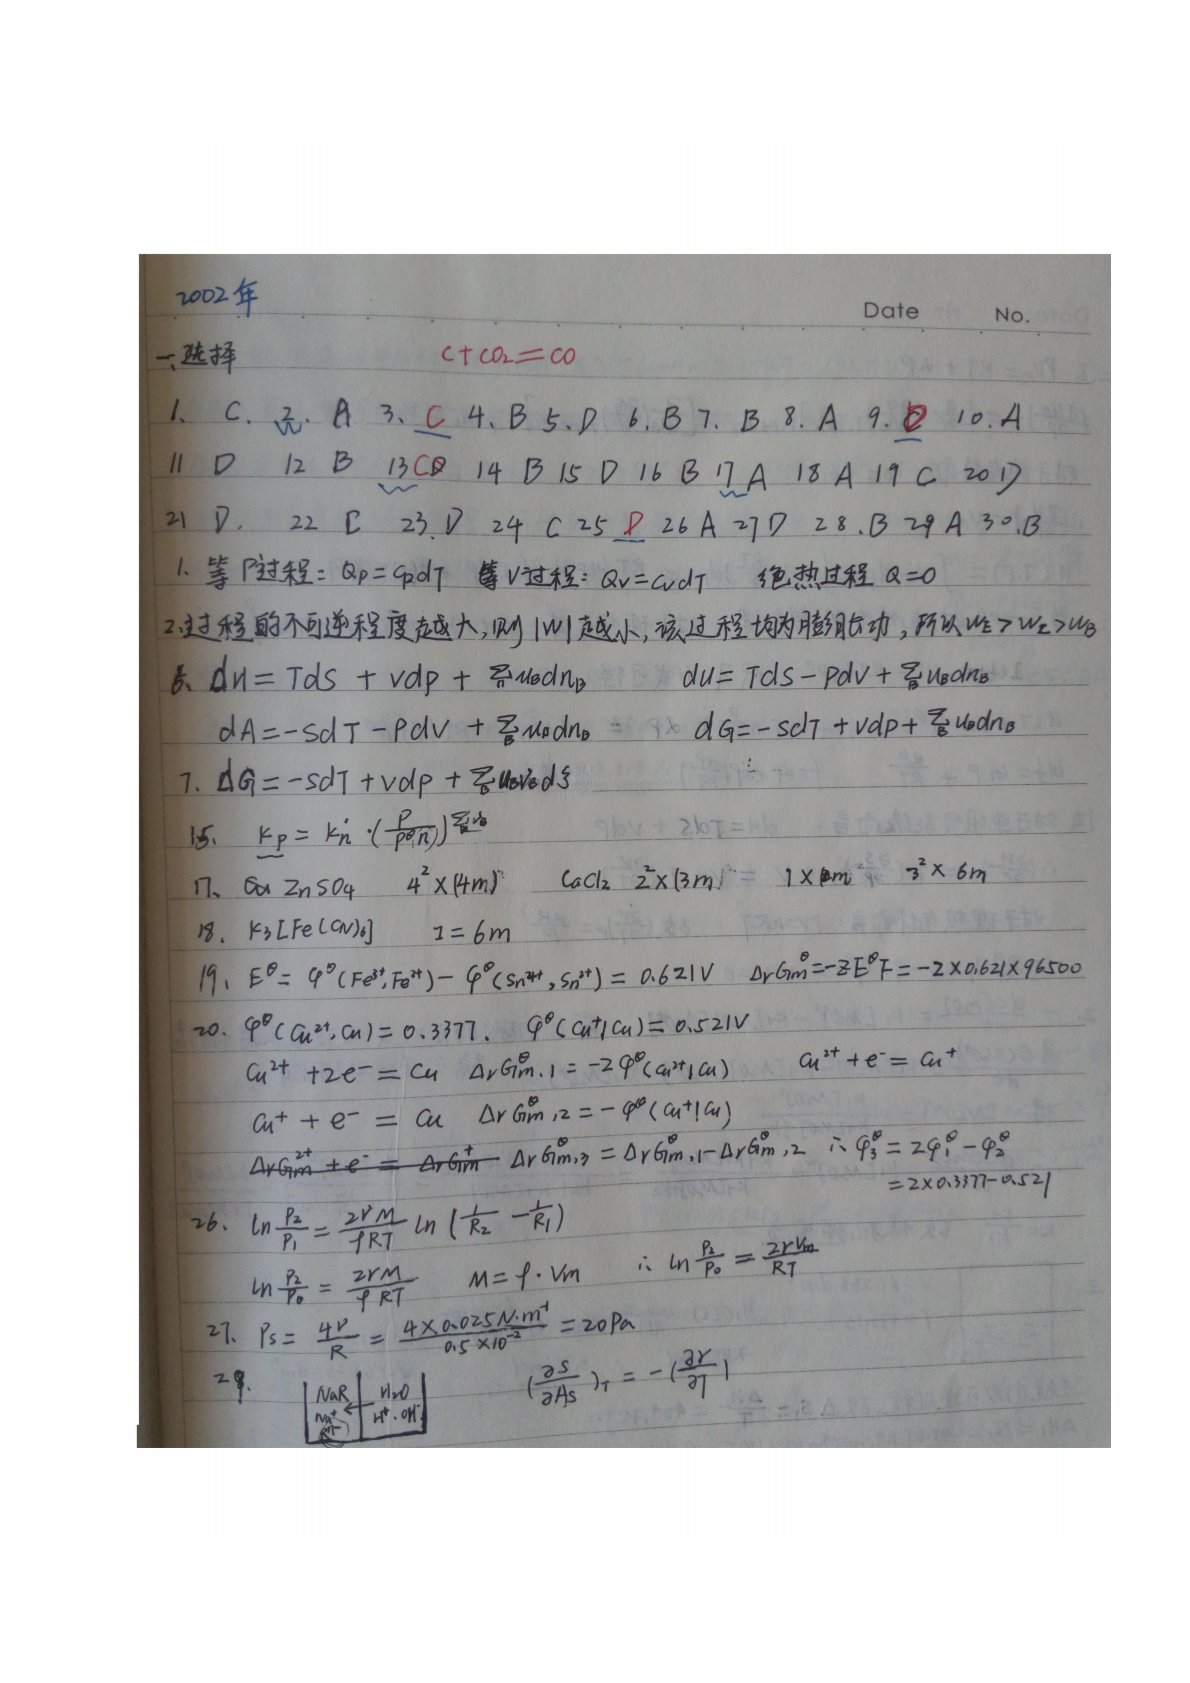 2002年
Date No.
一、选择 C+CO₂=CO
1. C. 2. A 3. C 4. B 5. D 6. B 7. B 8. A 9. 10. A
11 D 12 B 13 C 14 B 15 D 16 B 17 A 18 A 19 C 20 D
21 D. 22 C 23. D 24 C 25 D 26 A 27 D 28. B 29 A 30. B
1. 等P过程: Qp=CpdT 等V过程: Qv=CvdT 绝热过程 Q=0
2. 过程的不可逆程度越大,则|W|越小,该过程均为膨胀功,所以
6. dH = TdS + Vdp + Σ_B u_B dn_B dU = TdS - PdV + Σ_B u_B dn_B
dA = -SdT - PdV + Σ_B u_B dn_B dG = -SdT + Vdp + Σ_B u_B dn_B
7. dG = -SdT + Vdp + Σ_B u_B ν_B dξ
15. Kp = Kn · (P/P^θ n)^Σν_B
17. ZnSO₄ 4²×(4m) CaCl₂ 2²×(3m) 3²×6m
18. K₃[Fe(CN)₆] I=6m
19. E^θ = φ^θ(Fe³⁺,Fe²⁺) - φ^θ(Sn⁴⁺,Sn²⁺) = 0.621V ΔrGm^θ = -ZE^θF = -2×0.621×96500
20. φ^θ(Cu²⁺,Cu) = 0.3377. φ^θ(Cu⁺/Cu) = 0.521V
Cu²⁺ + 2e⁻ = Cu ΔrGm^θ,1 = -2φ^θ(Cu²⁺/Cu) Cu²⁺ + e⁻ = Cu⁺
Cu⁺ + e⁻ = Cu ΔrGm^θ,2 = -φ^θ(Cu⁺/Cu)
ΔrGm^θ,3 = ΔrGm^θ,1 - ΔrGm^θ,2 ∴ φ₃^θ = 2φ₁^θ - φ₂^θ
= 2×0.3377-0.521
26. ln P₂/P₁ = 2γM/ρRT ln (1/R₂ - 1/R₁)
ln P₂/P₀ = 2γM/ρRT M = ρ·Vm ∴ ln P₂/P₀ = 2γVm/RT
27. Ps = 4γ/R = 4×0.025N·m⁻¹/0.5×10⁻² = 20Pa
29. (∂S/∂As)_T = -(∂γ/∂T)
NaR H₂O
Na⁺ H⁺·OH⁻